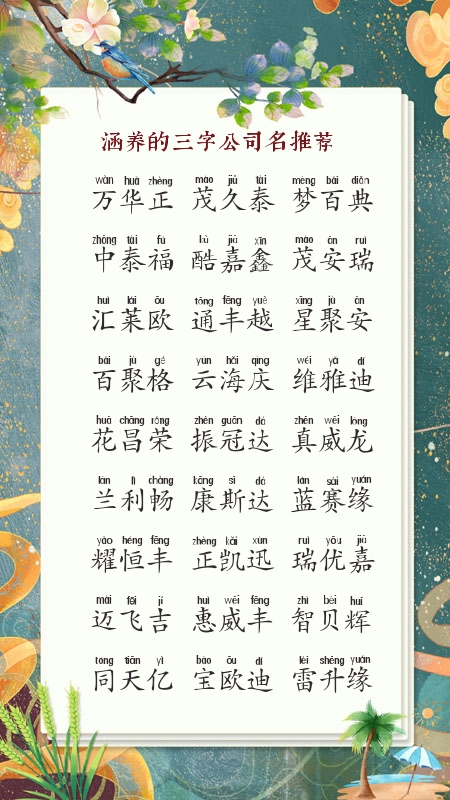 涵养的三字公司名推荐
wàn huá zhèng mào jiǔ tài mèng bǎi diǎn
万华正 茂久泰 梦百典
zhōng tài fú kù jiā xīn mào ān ruì
中泰福 酷嘉鑫 茂安瑞
huì lái ōu tōng fēng yuè xīng jù ān
汇莱欧 通丰越 星聚安
bǎi jù gé yún hǎi qìng wéi yǎ dí
百聚格 云海庆 维雅迪
huā chāng róng zhèn guān dá zhēn wēi lóng
花昌荣 振冠达 真威龙
lán lì chàng kāng sī dá lán sài yuán
兰利畅 康斯达 蓝赛缘
yào héng fēng zhèng kǎi xùn ruì yōu jiā
耀恒丰 正凯迅 瑞优嘉
mài fēi jí huì wēi fēng zhì bèi huī
迈飞吉 惠威丰 智贝辉
tóng tiān yì bǎo ōu dí léi shēng yuán
同天亿 宝欧迪 雷升缘